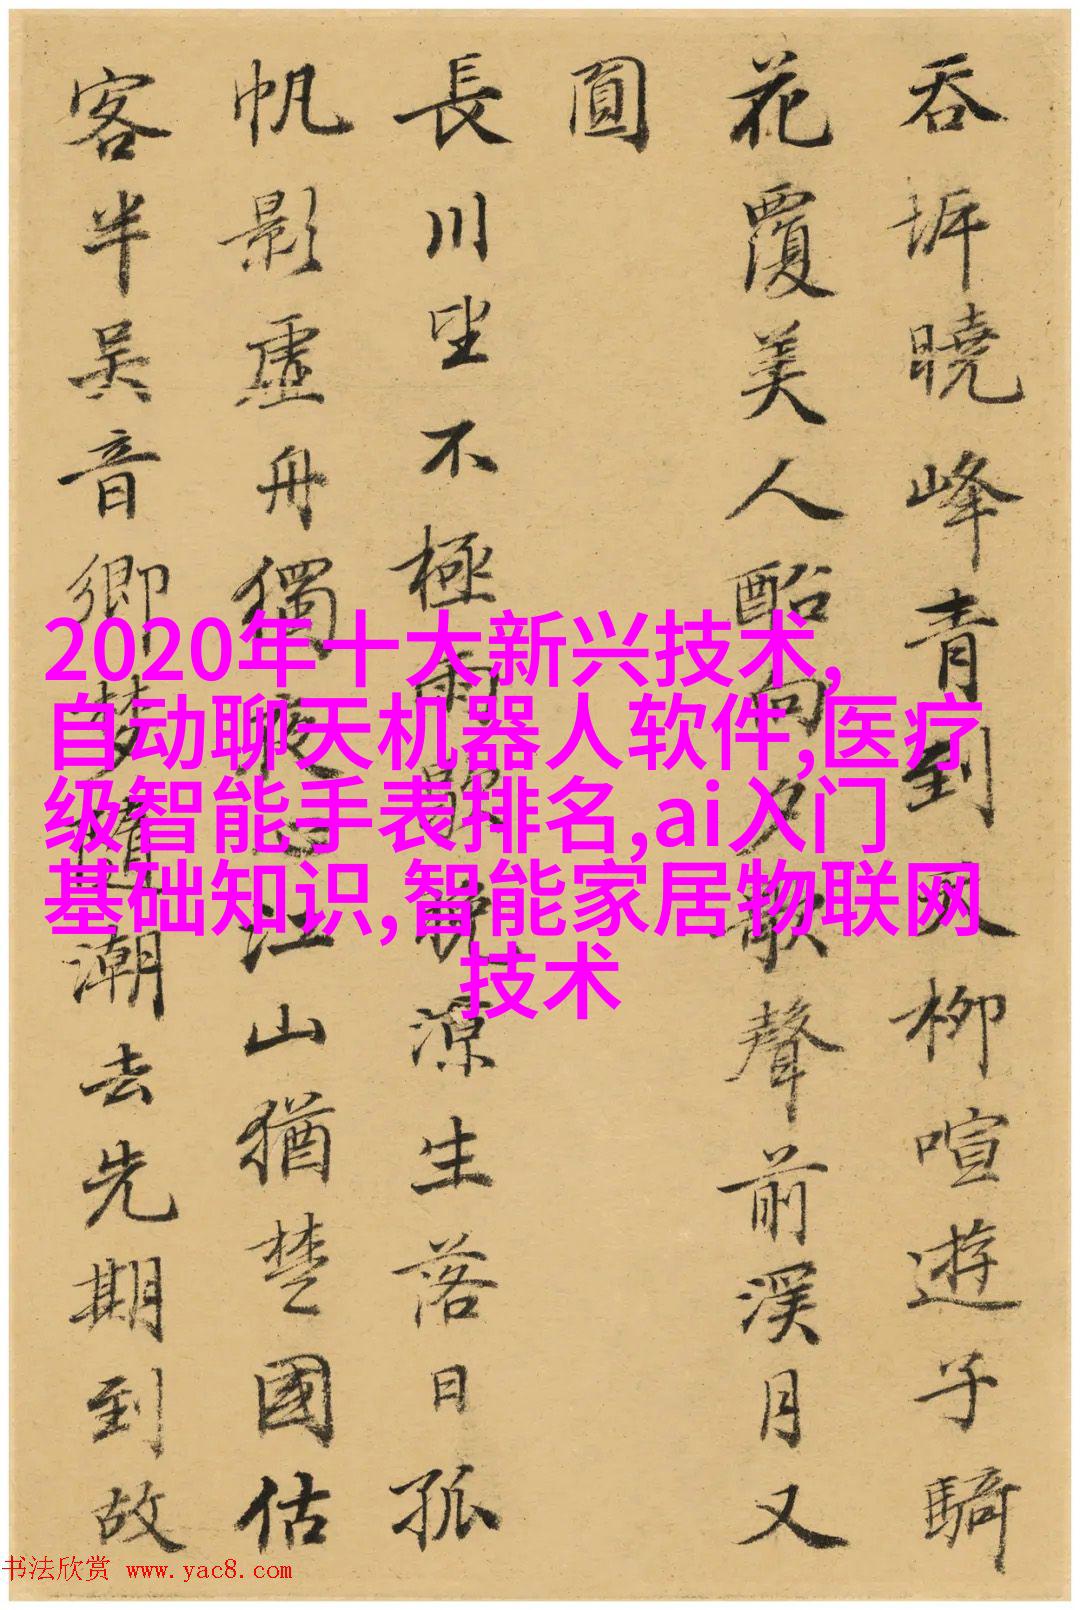 吞曉峰青到天柳喧遊子騎
花覆美人船向夕歌聲前溪月又
圓
長川望不極雨歇源生落日孤
帆影虛舟獨夜心江山猶楚國估
客半吳音鄉夢隨潮去先期到故
2020年十大新兴技术,
自动聊天机器人软件,医疗
级智能手表排名,ai入门
基础知识,智能家居物联网
技术
书法欣赏 www.yac8.com